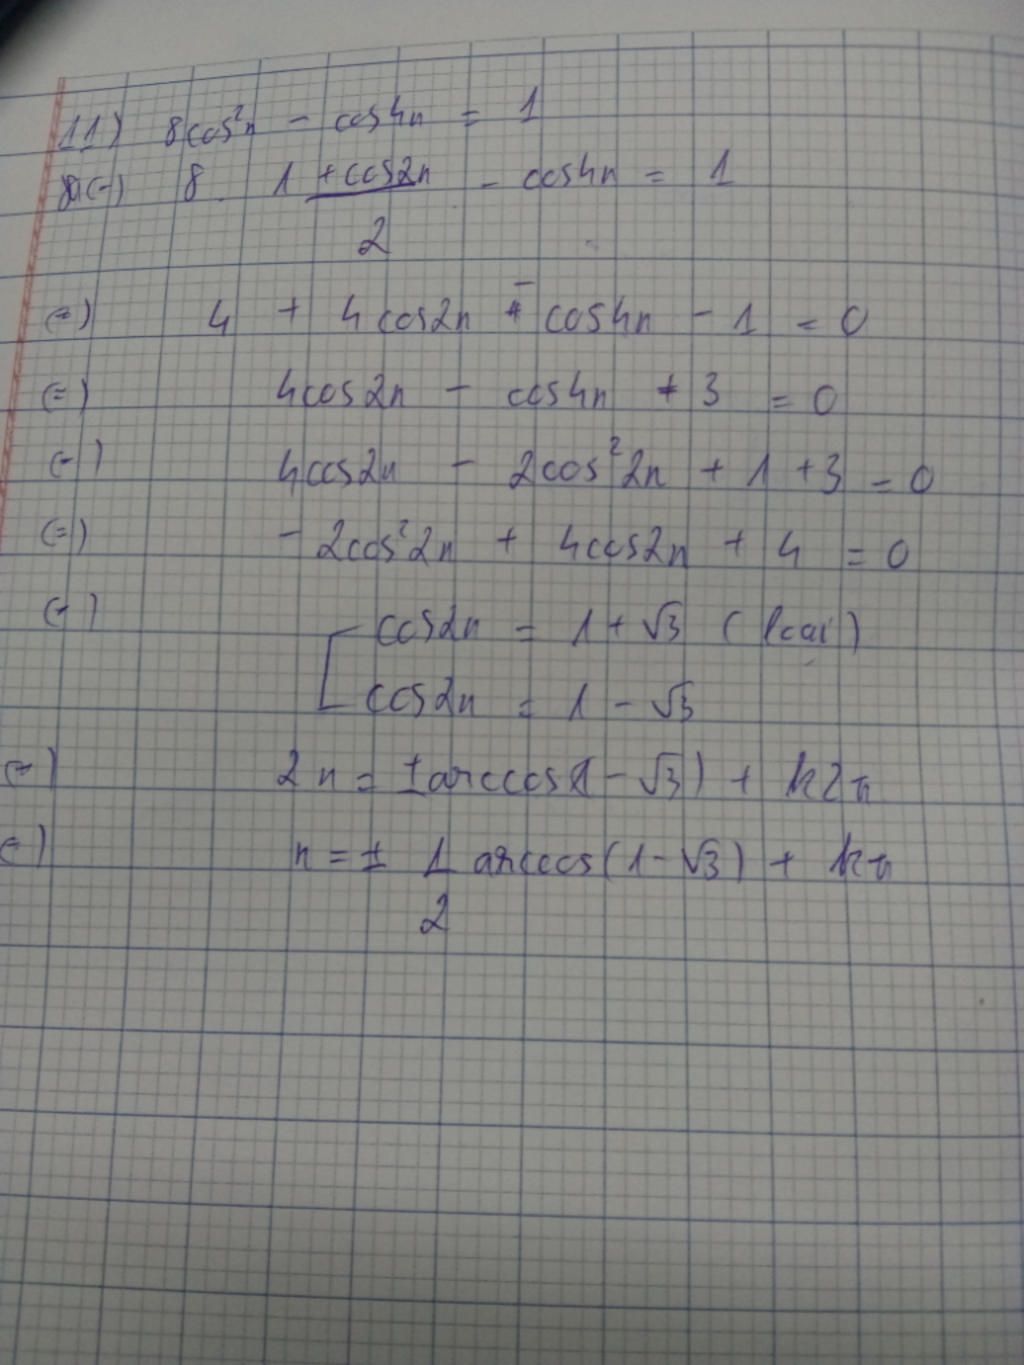 11) 8cos²x - cos4x = 1
(=) 8. 1 + cos2x - cos4x = 1
2
(=) 4 + 4cos2x - cos4x - 1 = 0
(=) 4cos2x - cos4x + 3 = 0
(=) 4cos2x - 2cos²2x + 1 + 3 = 0
(=) - 2cos²2x + 4cos2x + 4 = 0
(=) [ cos2x = 1 + √3 (loại)
cos2x = 1 - √3
(=) 2x = ± arccos(1 - √3) + k2π
(=) x = ± 1 arccos(1 - √3) + kπ
2